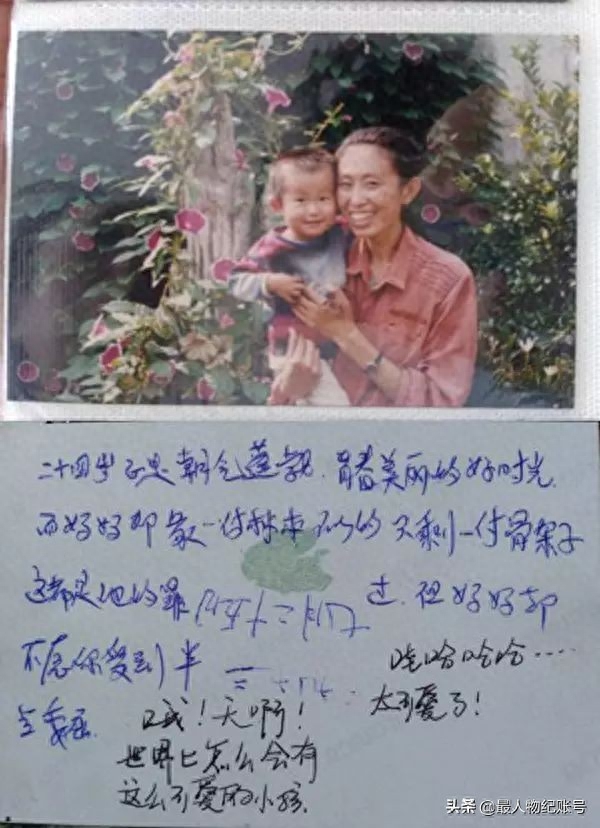 二十四岁正是朝气蓬勃.青春美丽的好时光.
而妈妈却象一付标本似的只剩一付骨架子
这都是他的罪 过.但妈妈却
不愿你受到半
点委屈.
哇哈哈哈……
太可愛了!
天啊!
世界上怎么会有
这么可愛的小孩.
头条 @最人物纪账号